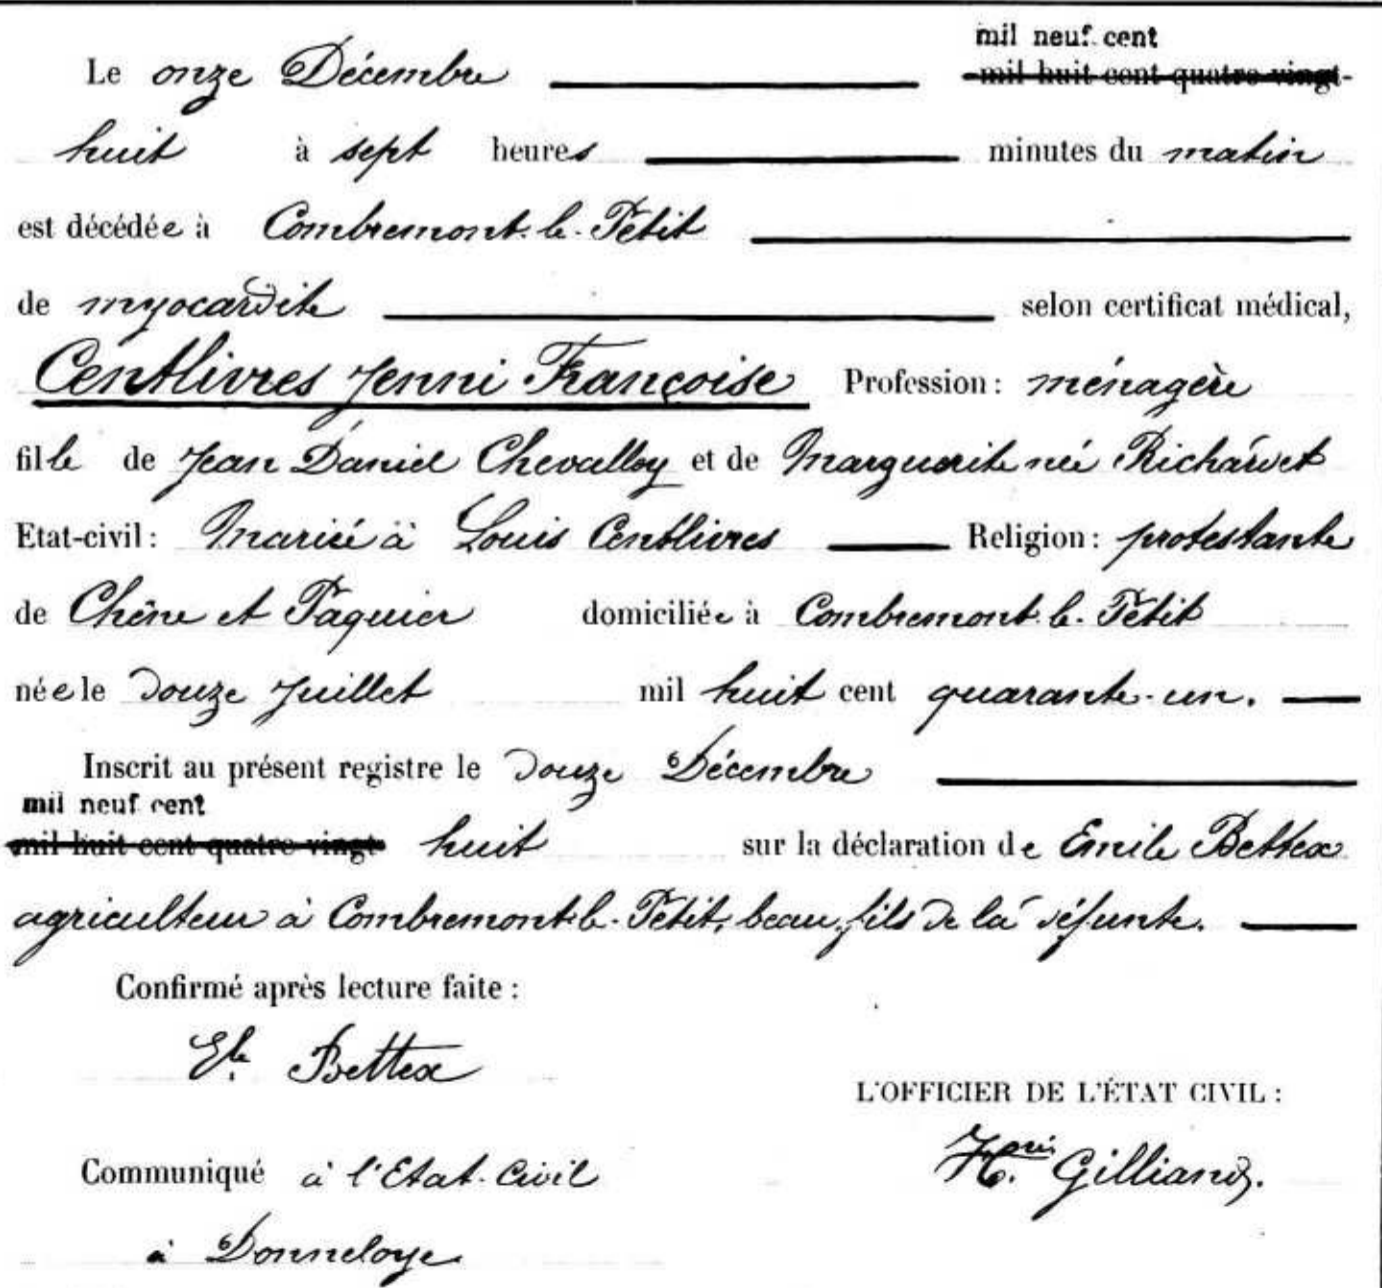 mil neuf cent
Le onze Décembre mil huit cent quatre vingt-
huit à sept heures minutes du matin
est décédée à Combremont-le-Petit
de myocardite selon certificat médical,
Centlivres Jenni Françoise Profession: ménagère
fille de Jean Daniel Chevalley et de Marguerite née Richardet
Etat-civil: Mariée à Louis Centlivres Religion: protestante
de Chêne et Pâquier domiciliée à Combremont-le-Petit
née le douze Juillet mil huit cent quarante-un.
Inscrit au présent registre le douze Décembre
mil neuf cent
mil huit cent quatre vingt huit sur la déclaration de Emile Bettex
agriculteur à Combremont-le-Petit, beau-fils de la défunte.
Confirmé après lecture faite:
Ele Bettex
L'OFFICIER DE L'ÉTAT CIVIL:
Hri Gilliand.
Communiqué à l'Etat-Civil
à Donneloye